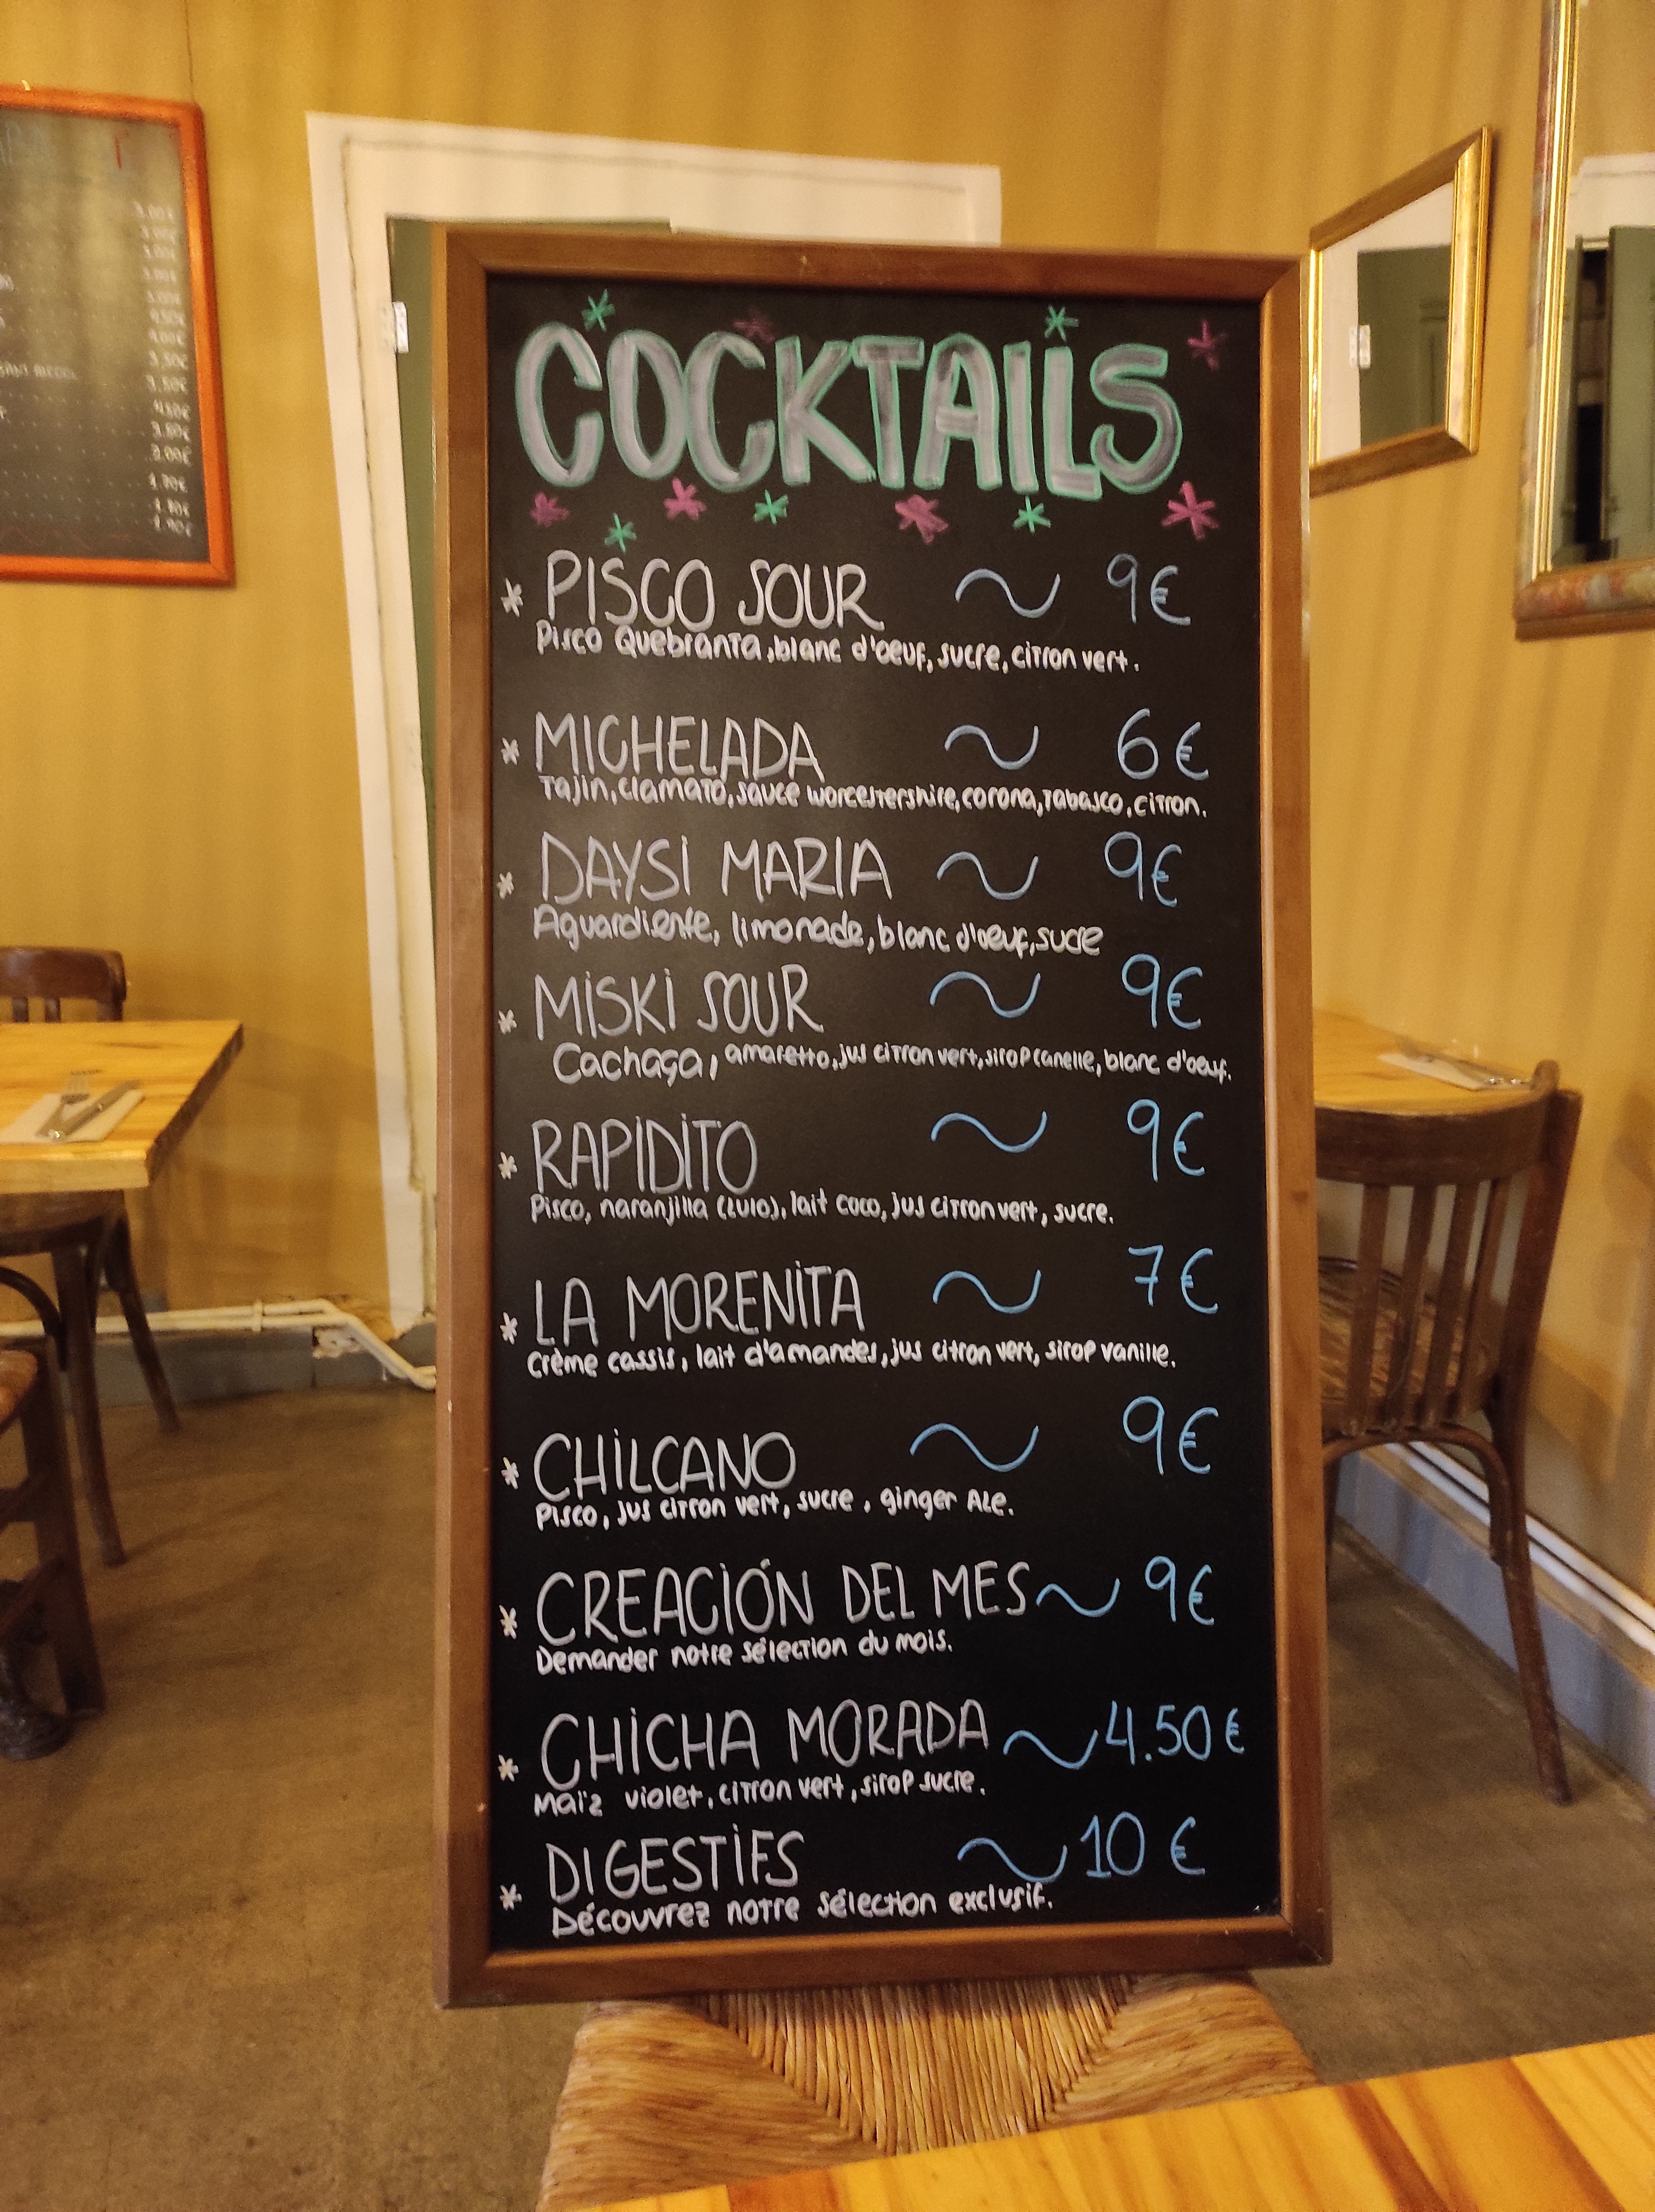 COCKTAILS
* PISCO SOUR ~ 9€
Pisco Quebranta, blanc d'oeuf, sucre, citron vert.
* MICHELADA ~ 6€
Tajin, clamato, sauce worcestershire, corona, Tabasco, citron.
* DAYSI MARIA ~ 9€
Aguardiente, limonade, blanc d'oeuf, sucre
* MISKI SOUR ~ 9€
Cachaça, amaretto, jus citron vert, sirop canelle, blanc d'oeuf.
* RAPIDITO ~ 9€
Pisco, naranjilla (LULO), lait coco, jus citron vert, sucre.
* LA MORENITA ~ 7€
Crème cassis, lait d'amandes, jus citron vert, sirop vanille.
* CHILCANO ~ 9€
Pisco, jus citron vert, sucre, ginger Ale.
* CREACIÓN DEL MES ~ 9€
Demander notre sélection du mois.
* CHICHA MORADA ~ 4.50 €
Maïz violet, citron vert, sirop sucre.
* DIGESTIFS ~ 10 €
Découvrez notre sélection exclusif.